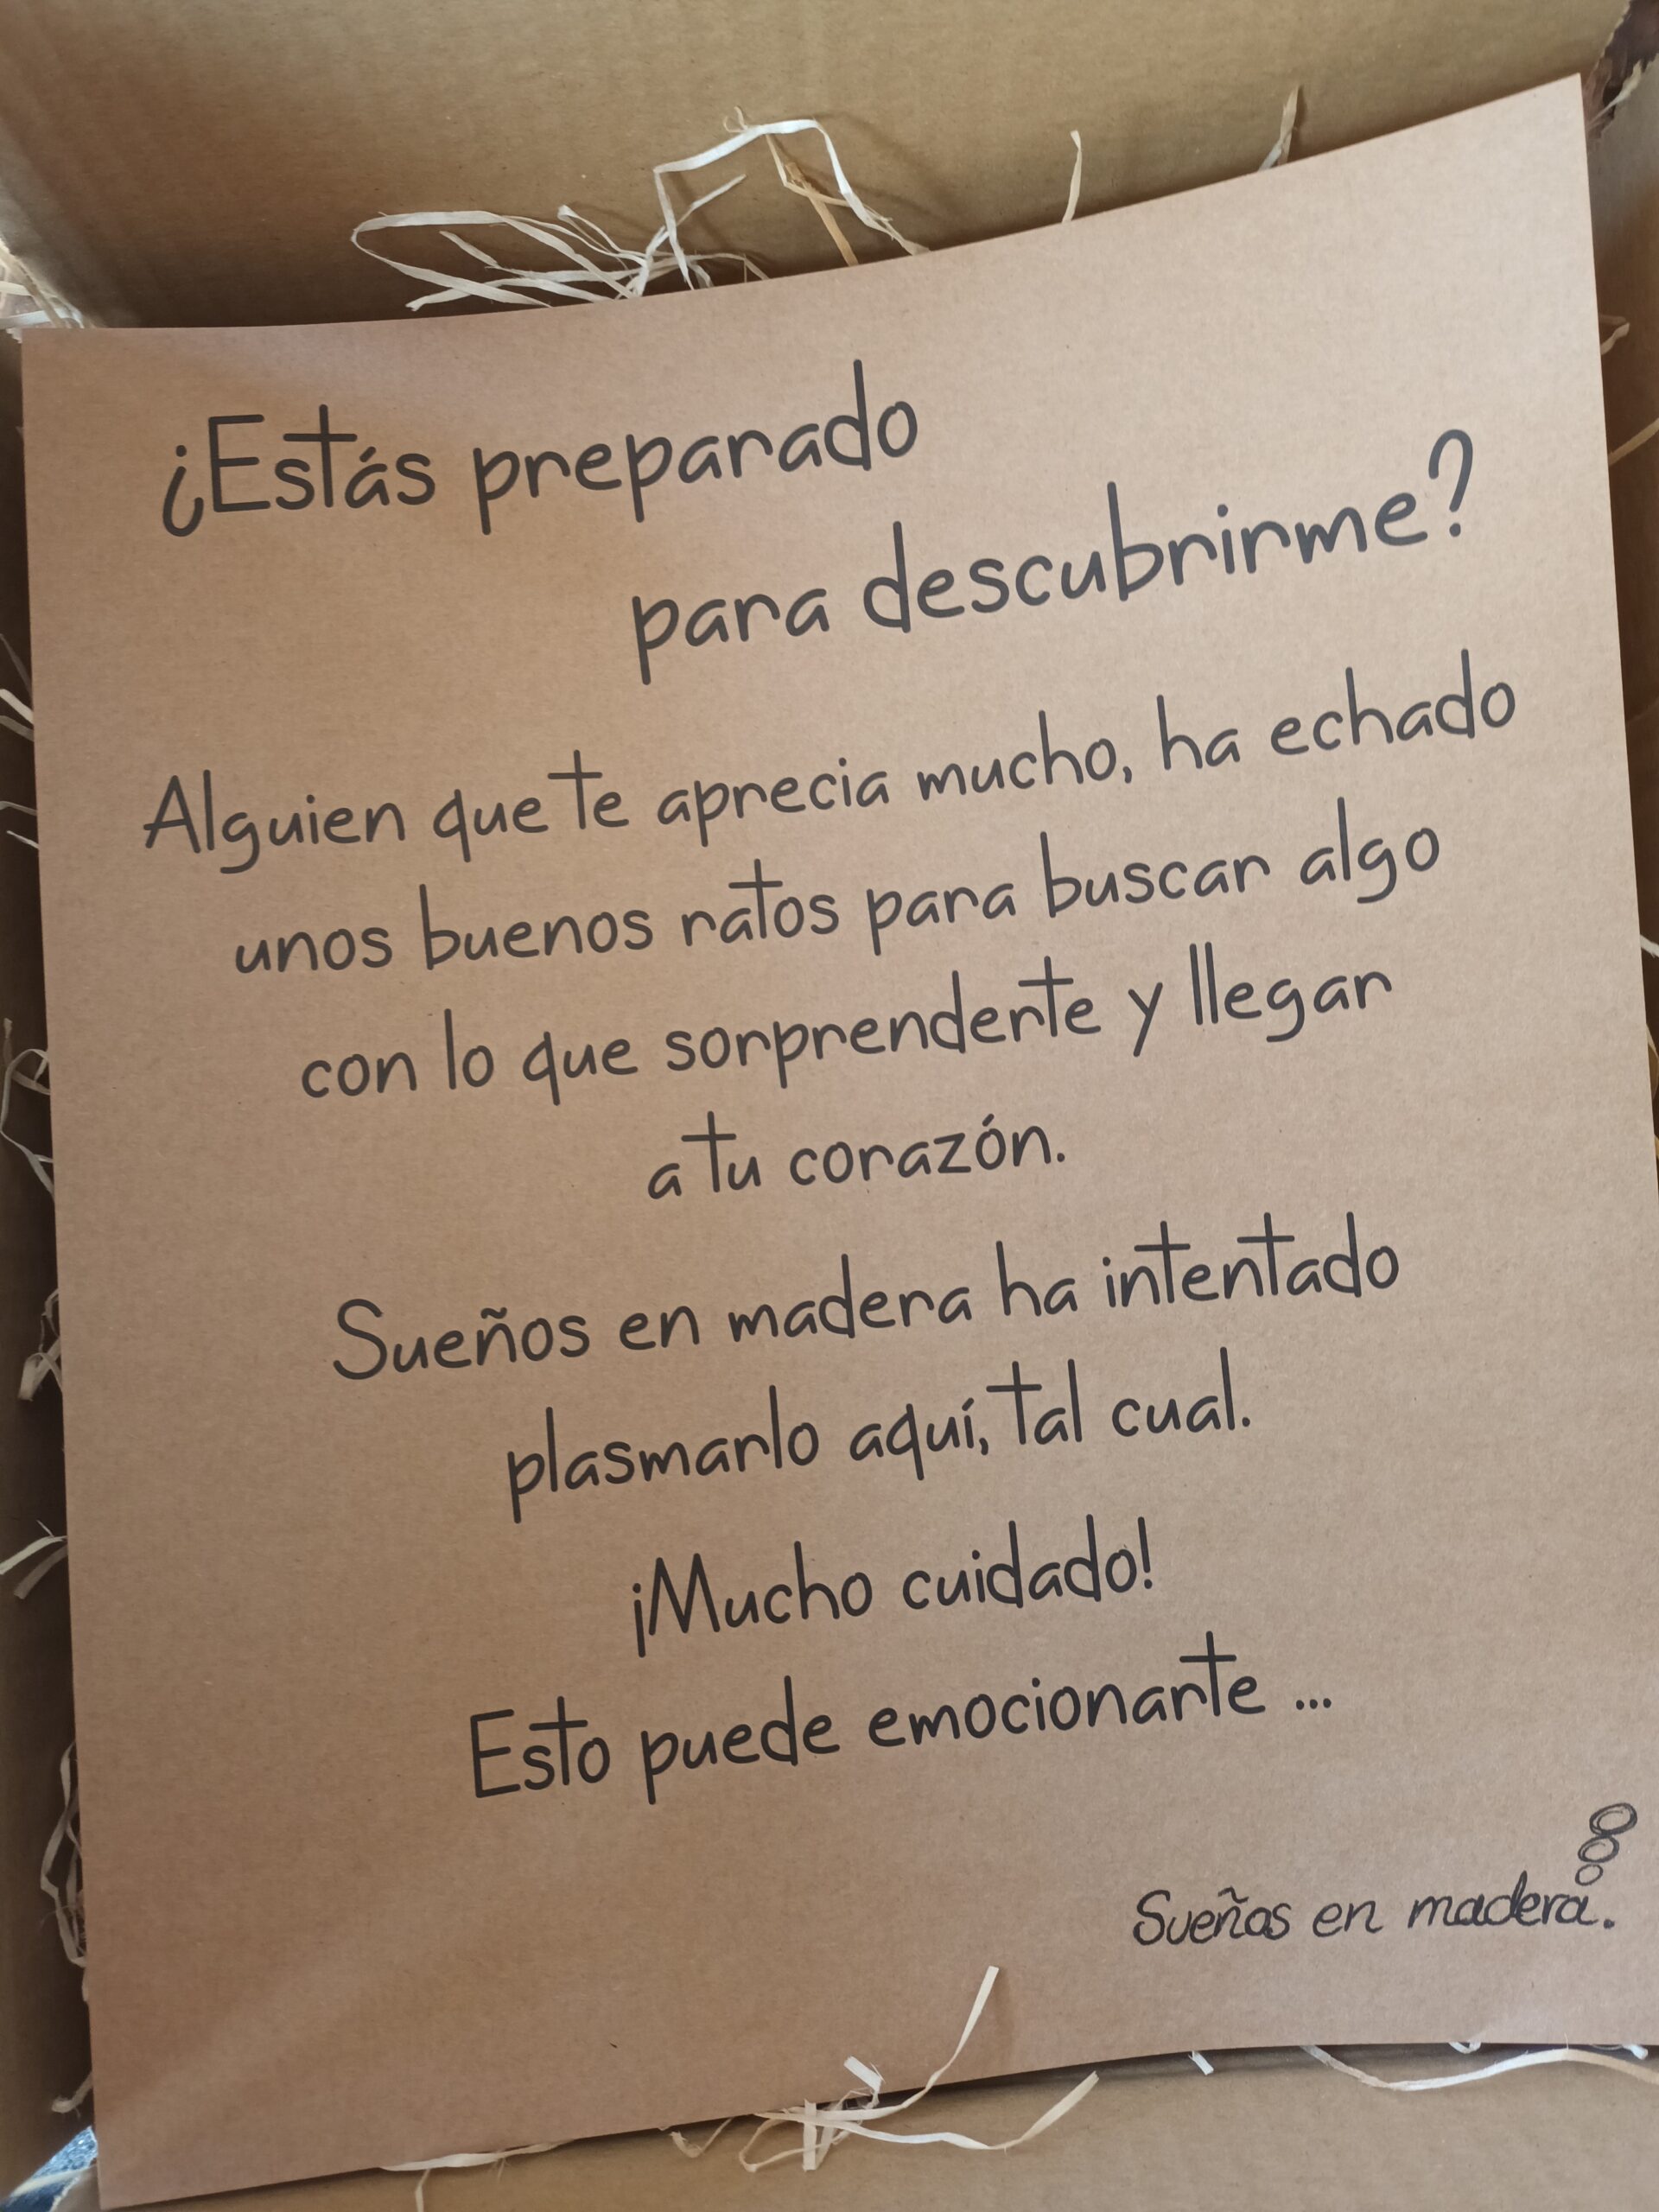 ¿Estás preparado
para descubrirme?
Alguien que te aprecia mucho, ha echado
unos buenos ratos para buscar algo
con lo que sorprenderte y llegar
a tu corazón.
Sueños en madera ha intentado
plasmarlo aquí, tal cual.
¡Mucho cuidado!
Esto puede emocionarte ...
Sueños en madera.